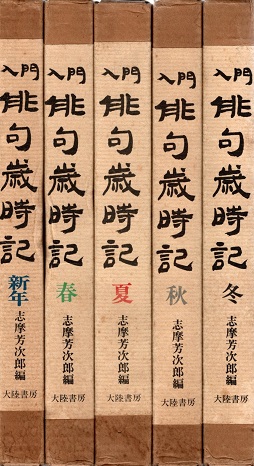 入門俳句歳時記
新年
志摩芳次郎編
大陸書房
入門俳句歳時記
春
志摩芳次郎編
大陸書房
入門俳句歳時記
夏
志摩芳次郎編
大陸書房
入門俳句歳時記
秋
志摩芳次郎編
大陸書房
入門俳句歳時記
冬
志摩芳次郎編
大陸書房